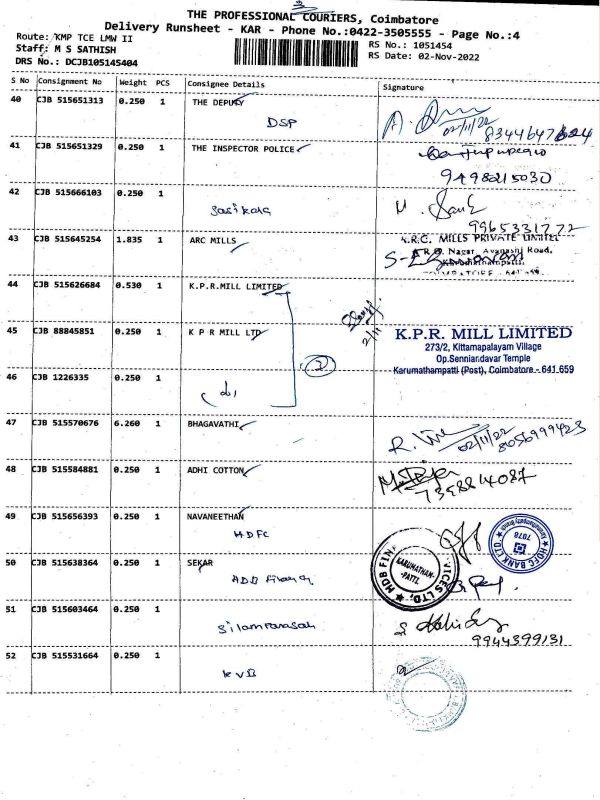 THE PROFESSIONAL COURIERS, Coimbatore
Delivery Runsheet - KAR - Phone No.:0422-3505555 - Page No.:4
Route: KMP TCE LMW II
RS No.: 1051454
Staff: M S SATHISH
RS Date: 02-Nov-2022
DRS No.: DCJB105145404
S No Consignment No Weight PCS Consignee Details Signature
40 CJB 515651313 0.250 1 THE DEPUTY
DSP
02/11/22
41 CJB 515651329 0.250 1 THE INSPECTOR POLICE
9498215030
42 CJB 515666103 0.250 1
Sasikala
9965331772
43 CJB 515645254 1.835 1 ARC MILLS
A.R.C. MILLS PRIVATE LIMITED
Nagar, Avanashi Road,
44 CJB 515626684 0.530 1 K.P.R.MILL LIMITED
2/11
45 CJB 88845851 0.250 1 K P R MILL LTD
K.P.R. MILL LIMITED
273/2, Kittamapalayam Village
Op.Senniandavar Temple
Karumathampatti (Post), Coimbatore.- 641 659
46 CJB 1226335 0.250 1
47 CJB 515570676 6.260 1 BHAGAVATHI
02/11/22
8056999423
48 CJB 515584881 0.250 1 ADHI COTTON
7398814087
49 CJB 515656393 0.250 1 NAVANEETHAN
HDFC
HDFC BANK LTD.
7078
50 CJB 515638364 0.250 1 SEKAR
HDB FIN
VICES LTD,
KARUMATHAM-
PATTI
51 CJB 515603464 0.250 1
Silamparasan
9944399131
52 CJB 515531664 0.250 1
KVB